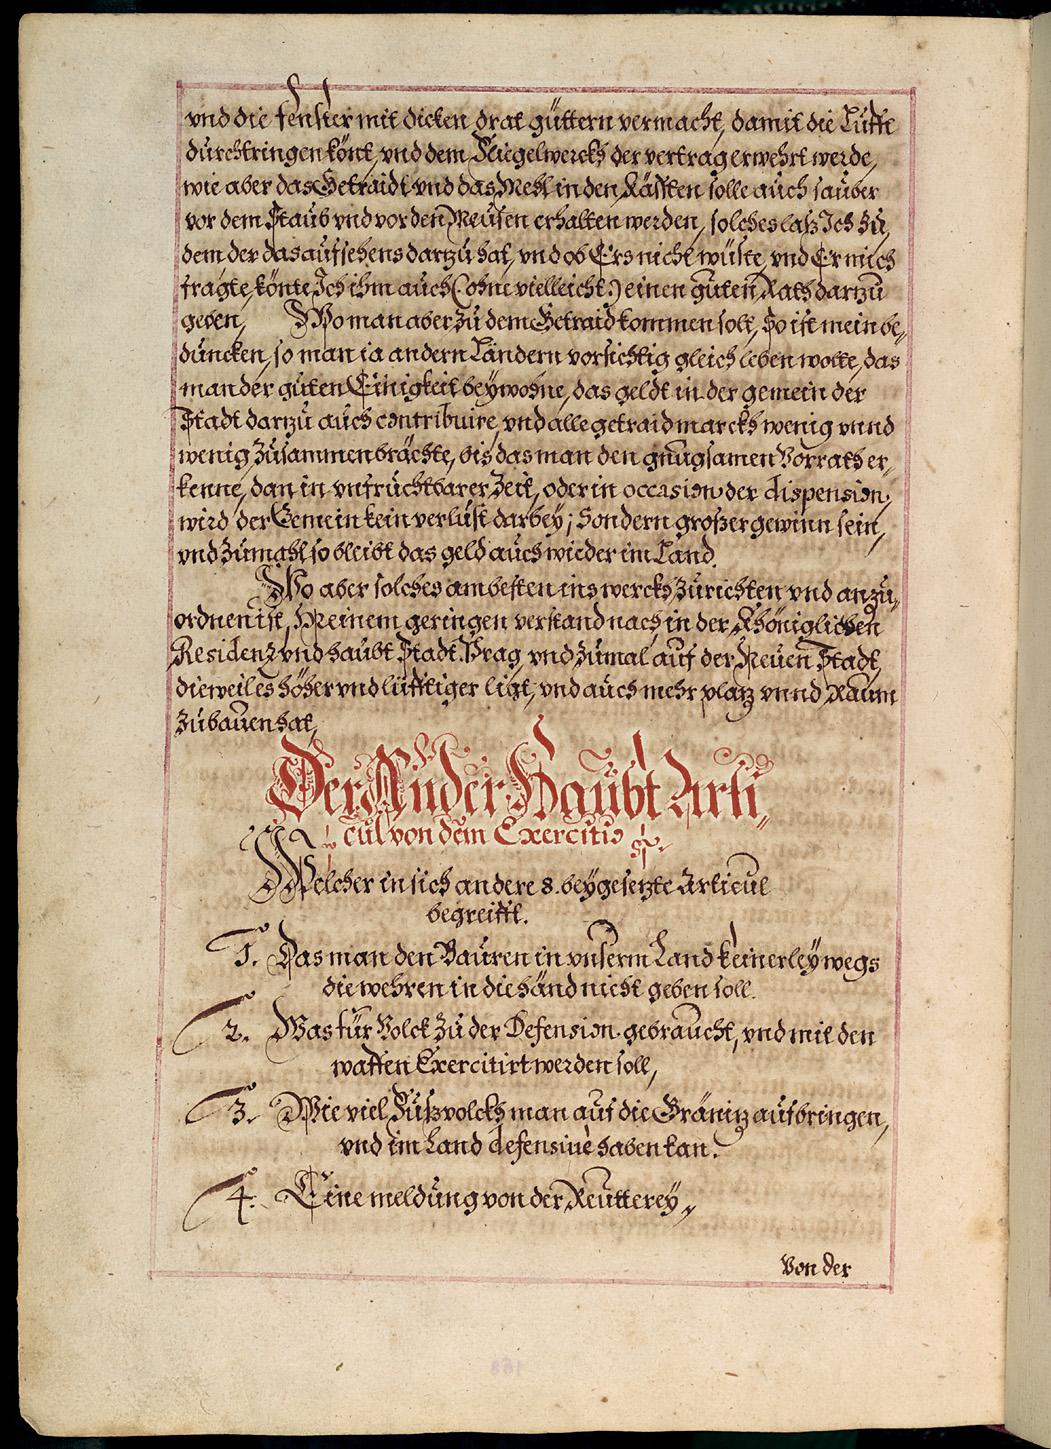 vnd die fenster mit dicken drat güttern vermacht, damit die Lufft
durchtringen könt, vnd dem Fliegelwercks der vertrag erwehrt werde,
wie aber das Getraidt vnd das Mehl in den Kästen solle auch sauber
vor dem Staub vnd vor den Meusen erhalten werden, solches laß Ich zu,
dem der das aufsehens darzu hat, vnd ob Ers nicht wüste, vnd Er mich
fragte, könte Ich ihm auch (ohne vielleicht:) einen guten Rath darzu
geben, Wo man aber zu dem Getraid kommen soll, So ist mein be,
duncken, so man ia andern Ländern vorsichtig gleich leben wolte, das
man der guten Einigkeit beywohne, das geldt in der gemein der
Stadt darzu auch contribuire, vnd alle getraid marckh wenig vnnd
wenig zusammen brächte, bis das man den gnugsamen Vorrath er,
kenne, dan in vnfruchtbarer Zeit, oder in occasion der dispension,
wird der Gemein kein verlust darbey; Sondern großer gewinn sein,
vnd zumahl so bleibt das geld auch wieder im Land.
Wo aber solches am besten ins werckh zurichten vnd anzu,
ordnen ist, Meinem geringen verstand nach, in der Khöniglichen
Residenz vnd haubt Stadt Prag, vnd zumal auf der Neuen Stadt,
dieweil es höher vnd lüfftiger ligt, vnd auch mehr platz vnnd Raum
zubauen hat,
Der Ander Haubt Arti,,
cul von dem Exercitio
Welcher in sich andere 8. beygesetzte Articul
begreifft.
1. Das man den Bauren in vnserm Land keinerley wegs
die wehren in die händ nicht geben soll.
2. Was für Volck zu der Defension gebraucht, vnd mit den
waffen Exercitirt werden soll,
3. Wie viel Fußvolckh man auf die Gränitz aufbringen,
vnd im Land defensiue haben kan.
4. Eine meldung von der Reutterey,,
Von der